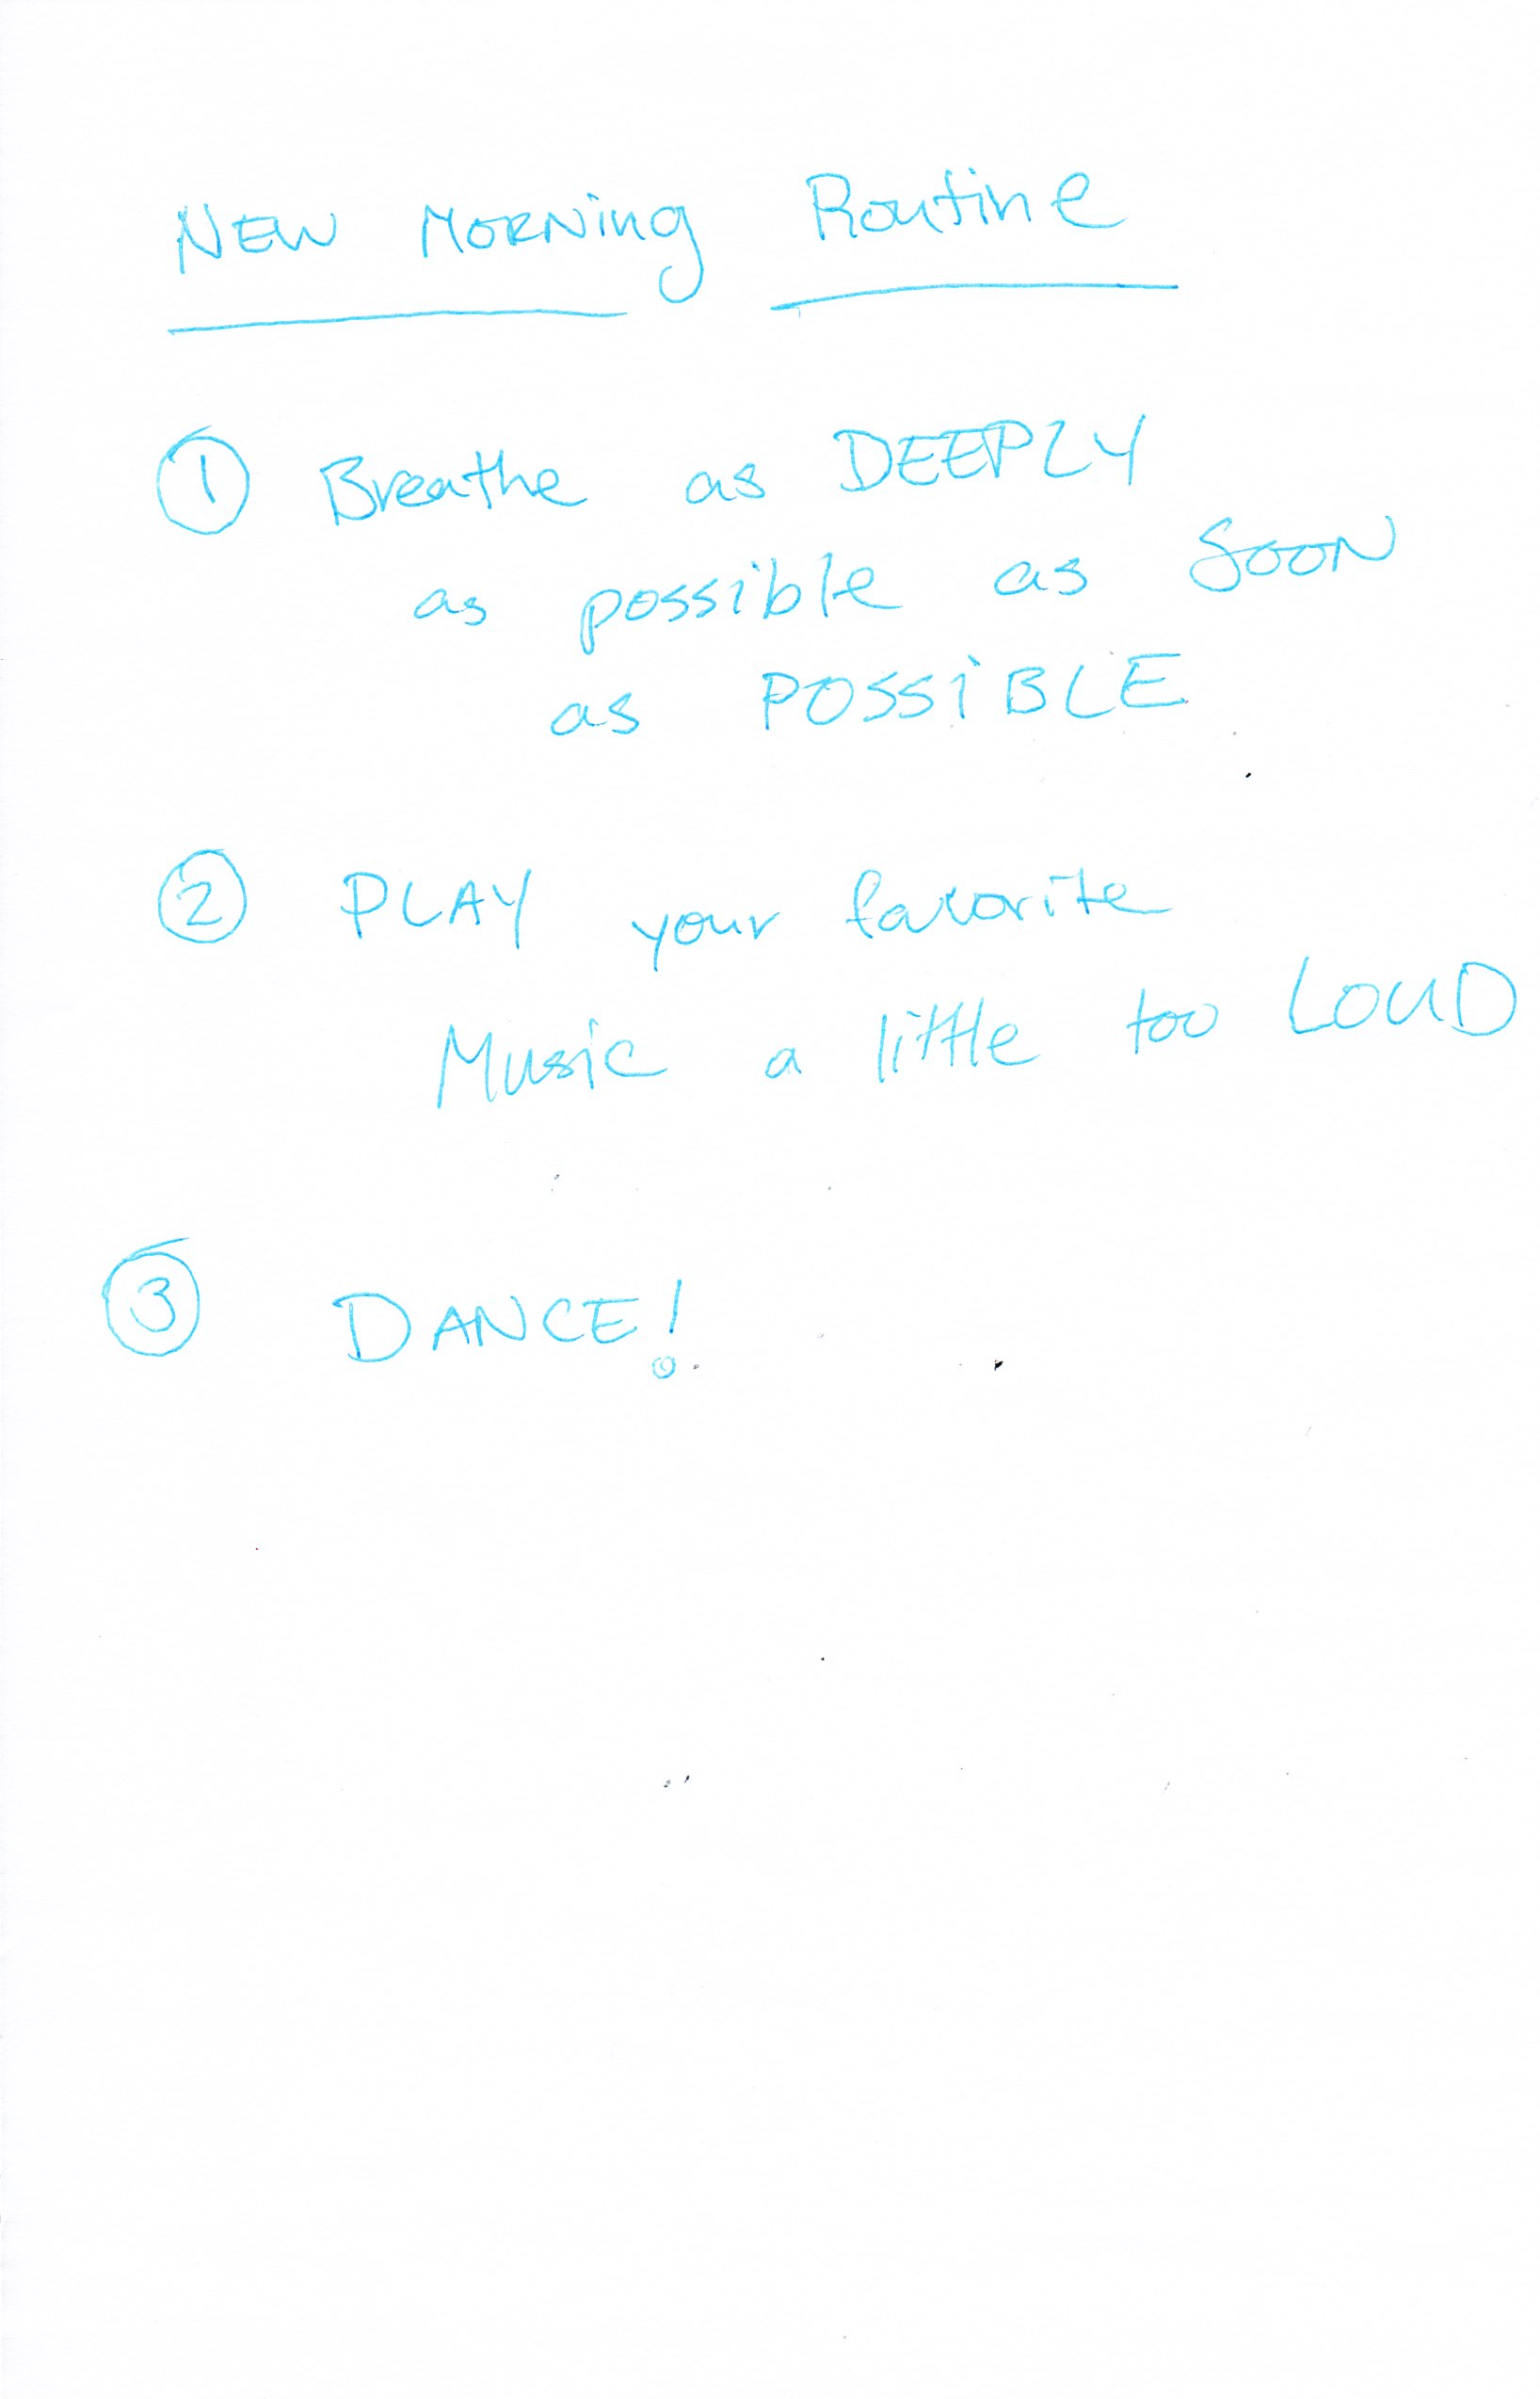 NEW MORNing Routine
① Breathe as DEEPLY
as possible as SOON
as POSSiBLE
② PLAY your favorite
Music a little too LOUD
③ DANCE!